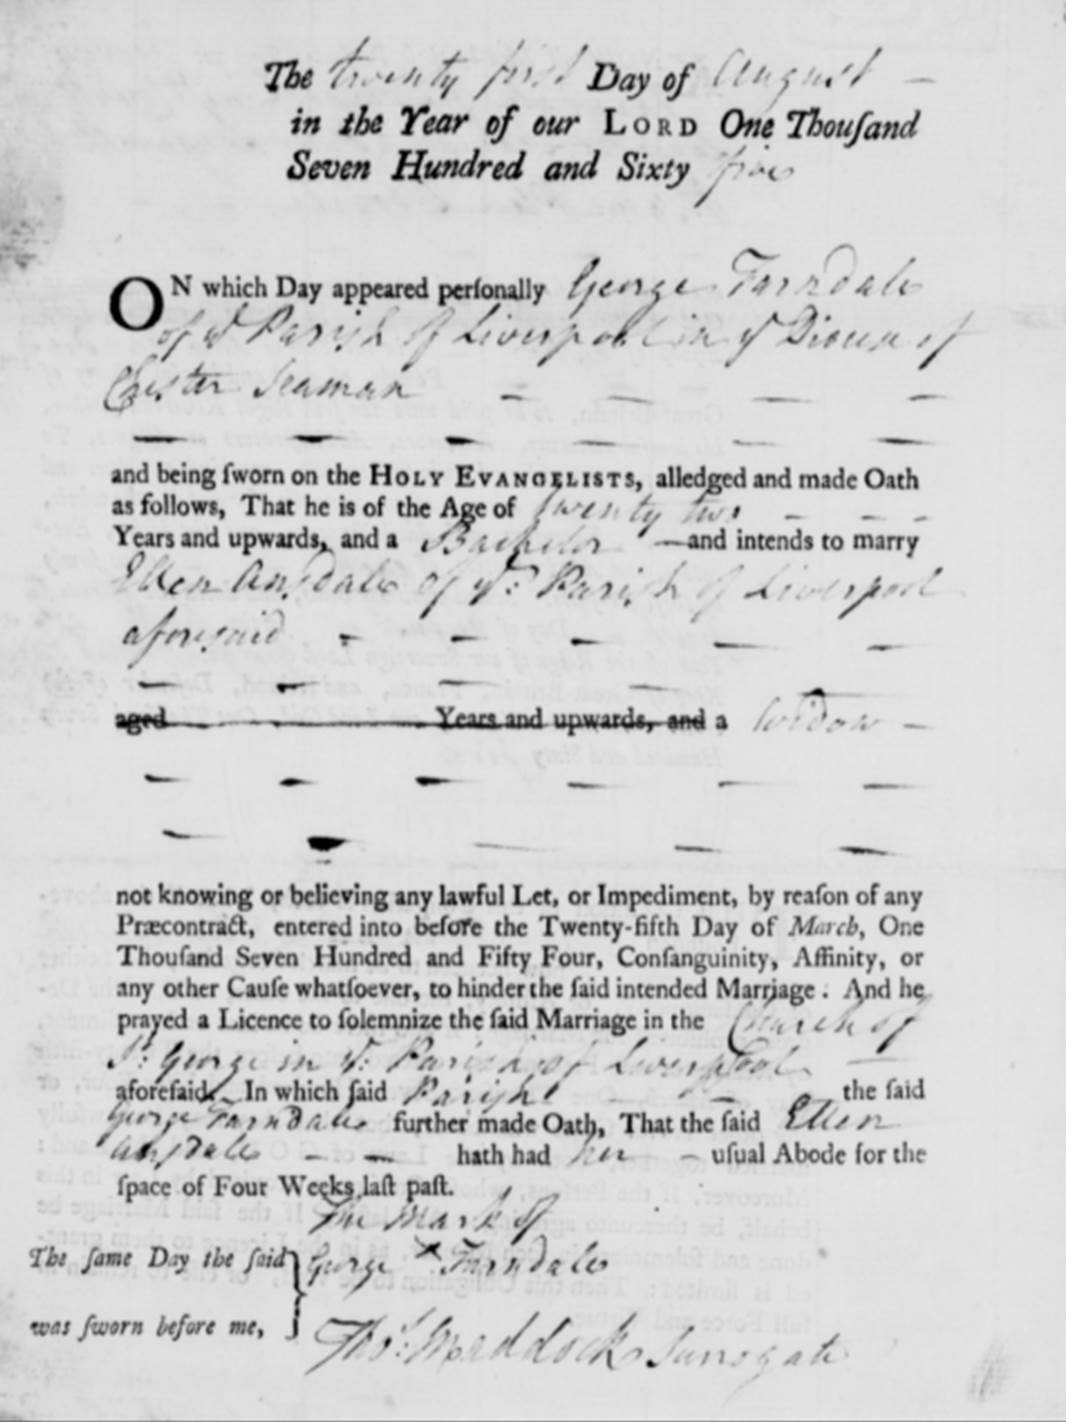 The twenty first Day of August —
in the Year of our LORD One Thouſand
Seven Hundred and Sixty five
ON which Day appeared perſonally George Farndale
of yͤ Pariſh of Liverpool in yͤ Dioceſe of
Cheſter Seaman — — — —
— — — — — —
and being ſworn on the HOLY EVANGELISTS, alledged and made Oath
as follows, That he is of the Age of twenty two — — —
Years and upwards, and a Batchelor — and intends to marry
Ellen Ansdale of yͤ: Pariſh of Liverpool
aforeſaid — — — — —
— — — — —
aged Years and upwards, and a Widow —
— — — — — —
— — — — —
not knowing or believing any lawful Let, or Impediment, by reaſon of any
Præcontract, entered into before the Twenty-fifth Day of March, One
Thouſand Seven Hundred and Fifty Four, Conſanguinity, Affinity, or
any other Cauſe whatſoever, to hinder the ſaid intended Marriage : And he
prayed a Licence to ſolemnize the ſaid Marriage in the Church of
Sͭ: George in yͤ: Pariſh of Liverpool —
aforeſaid. In which ſaid Pariſh — — the ſaid
George Farndale further made Oath, That the ſaid Ellen
Ansdale — — hath had her — uſual Abode for the
ſpace of Four Weeks laſt paſt.
The Mark of
The ſame Day the ſaid George X Farndale
was ſworn before me,
Thoˢ: Maddock Surrogate